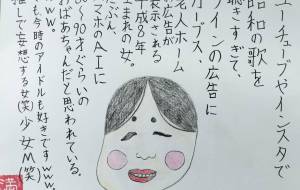 ユーチューブやインスタで
昭和の歌を
聴きすぎて、
ラインの広告に
オーブス、
老人ホーム
広告が
表示される
平成8年
生まれの女。
たぶん
スマホのAIに
80〜90才ぐらいの
おばあちゃんだと思われている。
www.
も今時のアイドルも好きですwww.
推しで妄想する女(笑)少女M(笑)
満